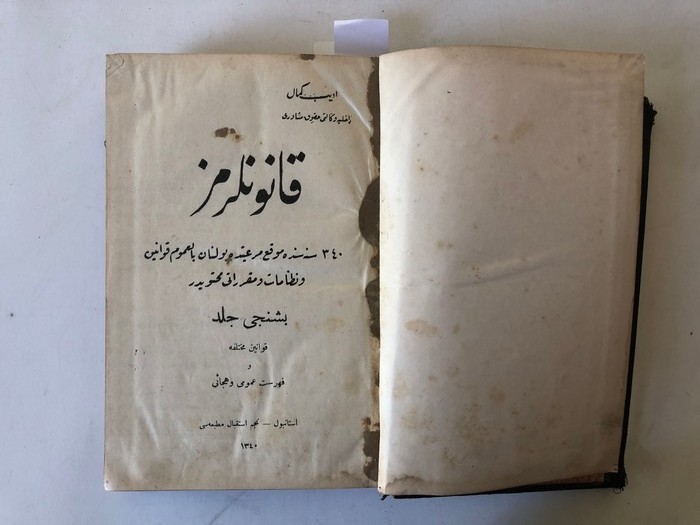 اديب كمال
داخليه وكالتى حقوق مشاورى
قانونلرمز
٣٤٠ سنه‌سنده موقع مرعيتده بولنان بالعموم قوانين
ونظامات ومقرراتى محتويدر
بشنجى جلد
قوانين مختلفه
و
فهرست عمومى وهجائى
استانبول — نجم استقبال مطبعه‌سى
١٣٤٠